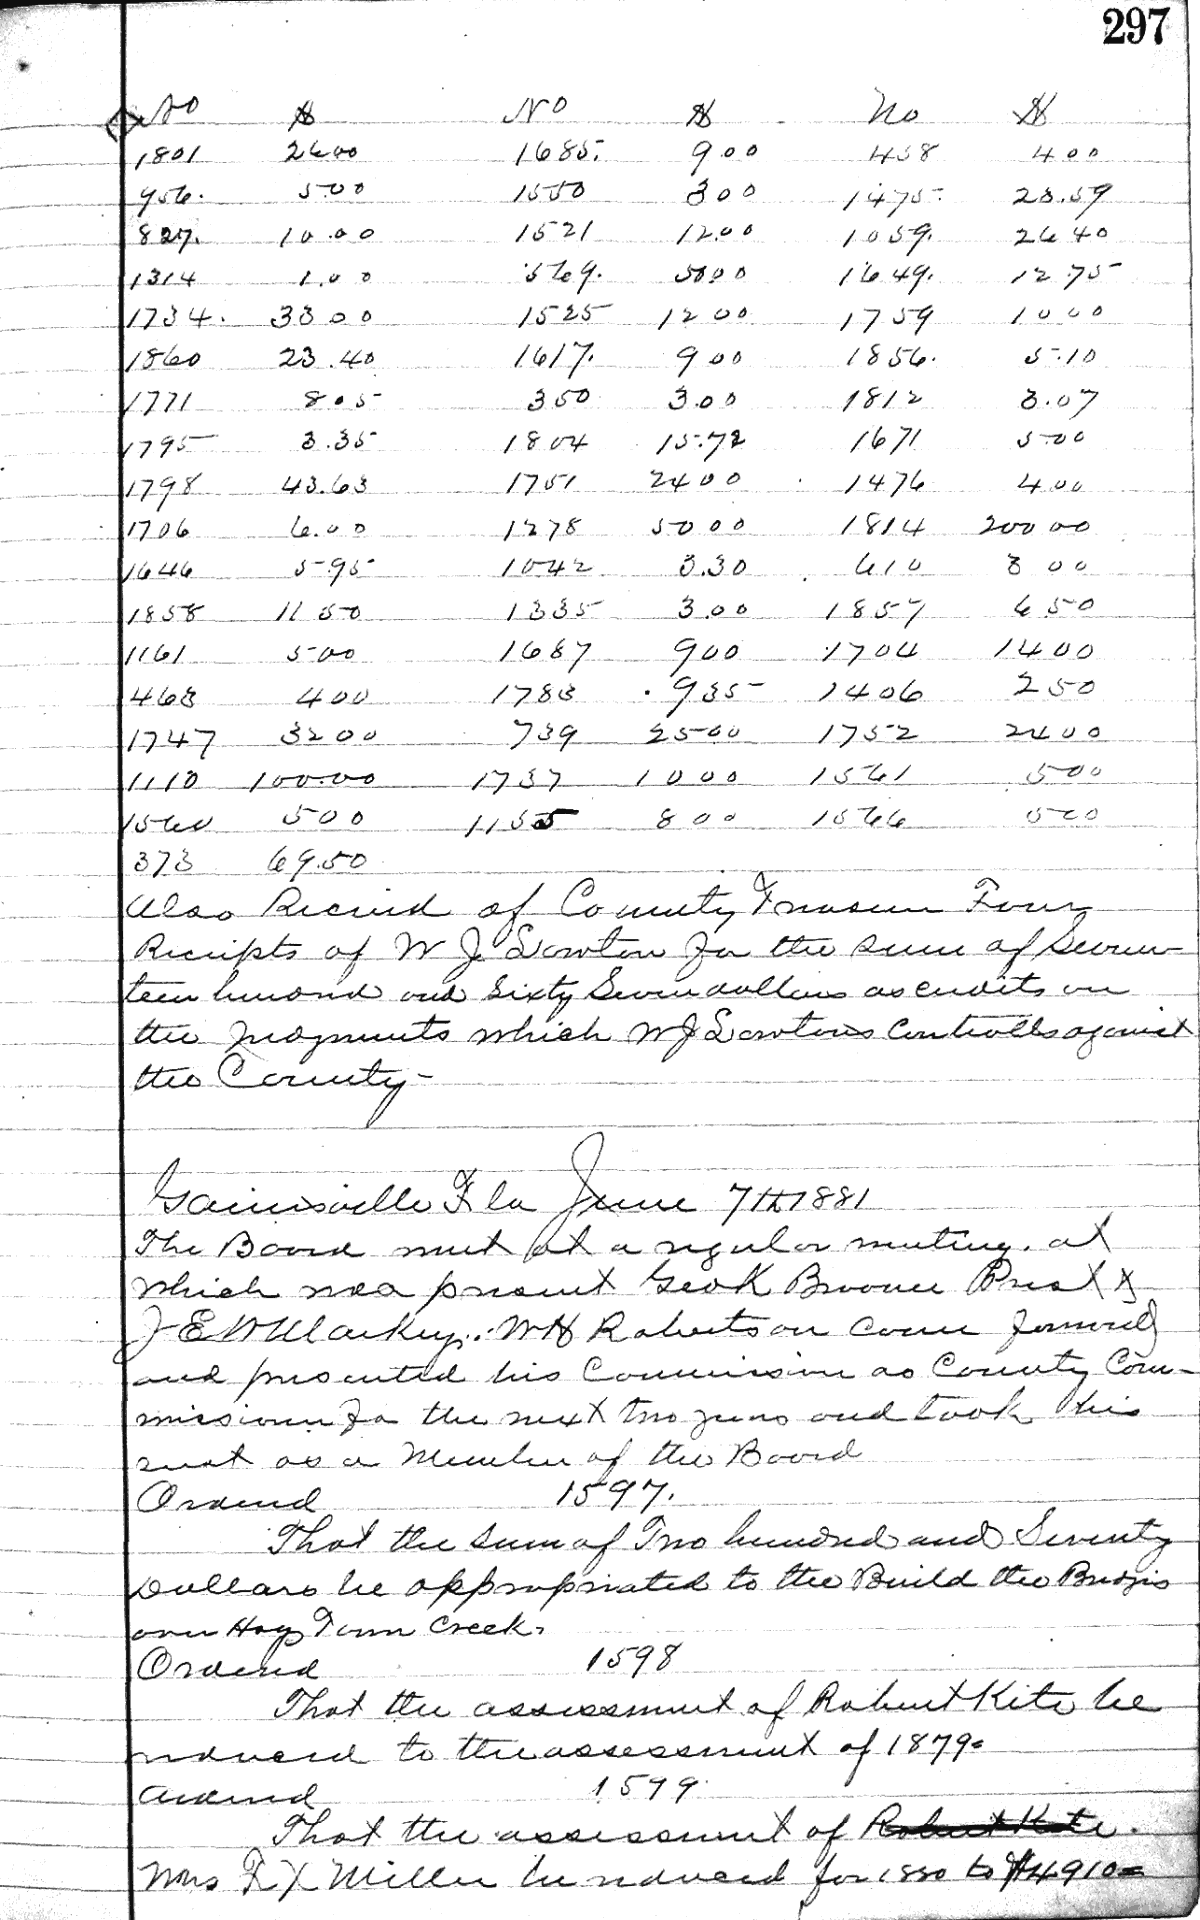 297
No $ No $ No $
1801 26 00 1685. 9 00 458 4 00
956. 5 00 1550 3 00 1475. 23.59
827. 10.00 1521 12.00 1059. 26 40
1314 1.00 569. 50.00 1649. 12.75
1734. 33 00 1525 12 00 1759 10 00
1860 23.40 1617. 9 00 1856. 5.10
1771 8.05 350 3.00 1812 3.07
1795 3.35 1804 15.72 1671 5 00
1798 43.63 1751 24 00 1476 4.00
1706 6.00 1278 50 00 1814 200 00
1646 5.95 1042 3.30 610 8 00
1858 11 50 1335 3.00 1857 6 50
1161 5 00 1687 9 00 1704 14 00
463 4 00 1783 9 35 1406 2 50
1747 32 00 739 25 00 1752 24 00
1110 100.00 1737 10 00 1561 5 00
1560 5 00 1155 8 00 1566 5 00
373 69.50
Also Received of County Treasurer Four
Receipts of W J Lawton for the sum of Seven-
teen hundred and Sixty Seven dollars as credits on
the Judgments which W J Lawtons Controlls against
the County-
Gainesville Fla June 7th 1881
The Board met at a regular meeting. at
which was present Geo K Broome Prest &
J E W Markey.. W H Robertson Come forward
and presented his Commission as County Com-
missioner for the next two years and took his
seat as a Member of the Board
Ordered 1597.
That the sum of Two hundred and Seventy
Dollars be appropriated to the Build the Bridges
over Hog Town Creek.
Ordered 1598
That the assessment of Robert Kite be
reduced to the assessment of 1879=
Ordered 1599
That the assessment of Robert Kite.
Mrs F X Miller be reduced for 1880 to $4910=